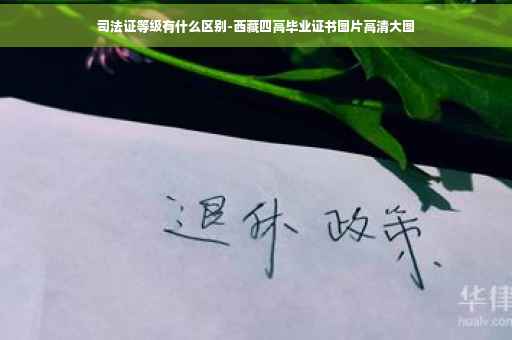 司法证等级有什么区别-西藏四高毕业证书图片高清大图
退休政策
华律
hualv.com